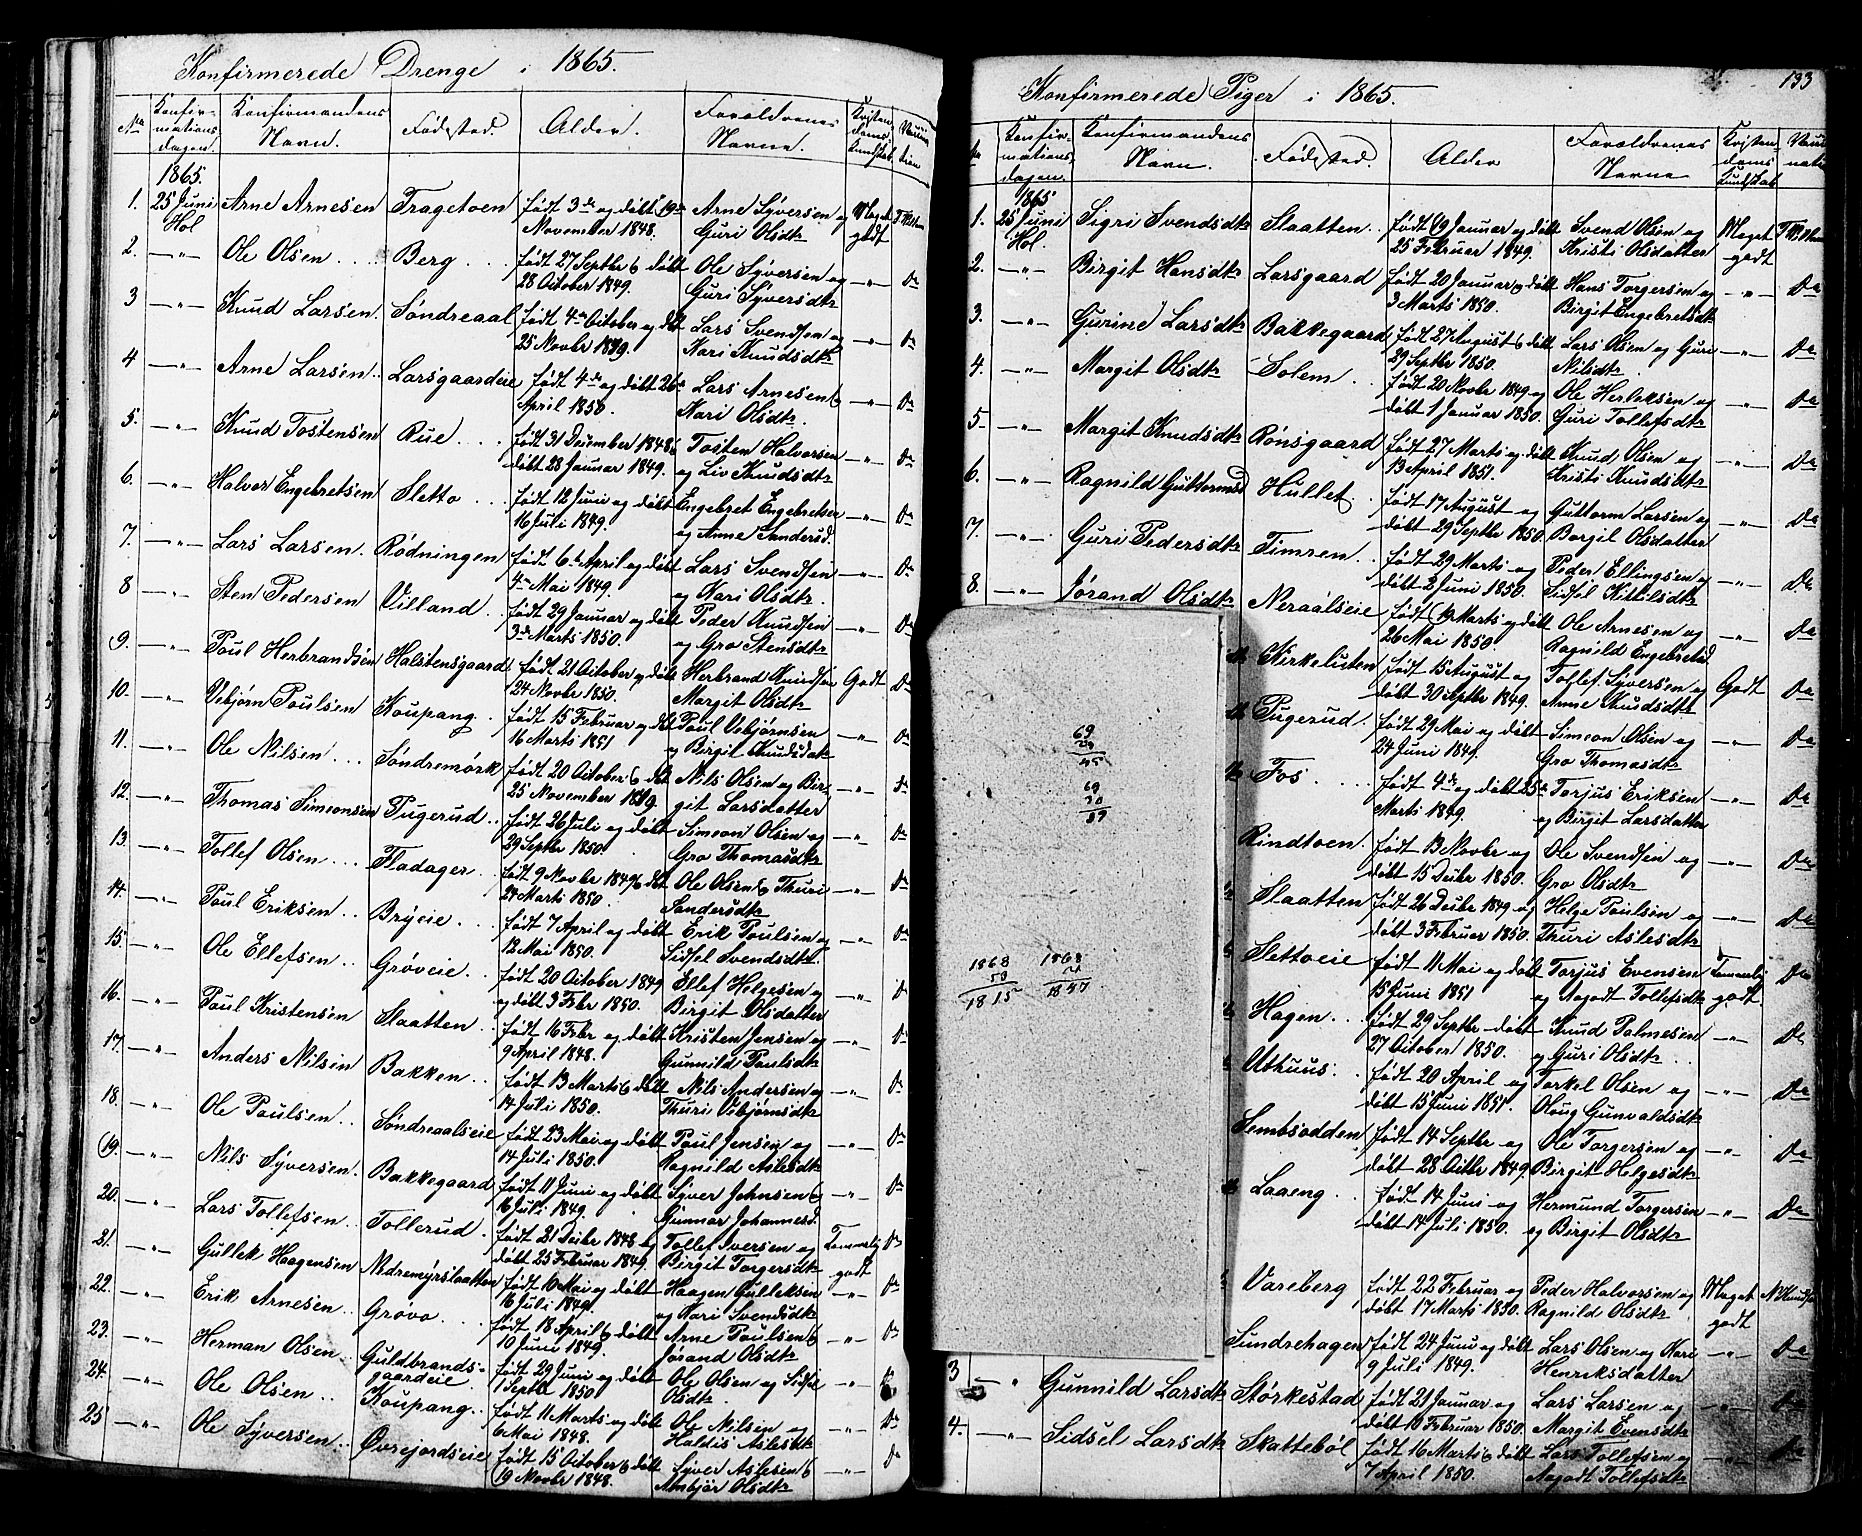 Konfirmerede Drenge i 1865.
No Konfirmationsdagen. Konfirmandens Navn. Fødested. Alder. Forældrenes Navne. Kristendomskundskab
1865.
1. 25 Juni Hol Arne Arnesen Tragetoen født 3de og døbt 19de November 1848. Arne Syversen og Guri Olsdtr Meget godt
2. —"— Ole Olsen Berg født 27 Septbr & døbt 28 October 1849. Ole Syversen og Guri Syversdtr —"— Do
3 —"— Knud Larsen Søndreaal født 4de October og døbt 25 Novbr 1849. Lars Svendsen og Kari Knudsdtr —"— Do
4 —"— Arne Larsen Larsgaardeie født 4de og døbt 26de April 1850. Lars Arnesen & Kari Olsdtr —"— Do
5. —"— Knud Tostensen Rue født 31 December 1848 & døbt 28 Januar 1849. Tosten Halvorsen og Liv Knudsdtr —"— Do
6. —"— Halvor Engebretsen Sletto født 12 Juni og døbt 16 Juli 1849. Engebret Engebretsen og Anne Sandersd. —"— Do
7. —"— Lars Larsen. Rødningen født 6te April og døbt 4de Mai 1849. Lars Svendsen og Kari Olsdtr —"— Do
8 —"— Sten Pedersen Villand født 29 Januar og døbt 3de Marts 1850. Peder Knudsen og Gro Stensdtr —"— Do
9. —"— Poul Herbrandsen Halstensgaard født 21 October og døbt 24 Novbr 1850. Herbrand Knudsen Margit Olsdtr Godt Do
10. —"— Vebjørn Poulsen Koupang født 15 Februar og døbt 16 Marts 1851 Poul Vebjørnsen og Birgit Knudsdatr —"— Do
11. —"— Ole Nilsen Søndremørk født 20 October & døbt 25 November 1849 Nils Olsen og Birgit Larsdatter —"— Do
12. —"— Thomas Simeonsen Pugerud født 26 Juli og døbt 29 Septbr 1850. Simeon Olsen og Gro Thomasdtr —"— Do
13. —"— Tollef Olsen Fladager født 9 Novbr 1849 & døbt 24 Marts 1850. Ole Olsen & Thuri Sandersdtr —"— Do
14. —"— Poul Eriksen Bryeie. født 7 April og døbt 12 Mai 1850. Erik Poulsen og Sidsel Svendsdtr. —"— Do
15. —"— Ole Ellefsen Grøveie. født 20 October 1849 og døbt 3 Febr 1850. Ellef Helgesen og Birgit Olsdatter —"— Do
16. —"— Paul Kristensen Slaatten født 16 Febr og døbt 9 April 1848. Kristen Jensen og Gunnild Paulsdtr —"— Do
17. —"— Anders Nilsen Bakken født 13 Marts & døbt 14 Juli 1850. Nils Andersen og Thuri Vebjørnsdtr —"— Do
18. —"— Ole Paulsen Søndreaalseie født 23 Mai og døbt 14 Juli 1850. Paul Jensen og Ragnild Aslesdtr —"— Do
19. —"— Nils Syversen. Bakkegaard født 11 Juni og døbt 16 Juli 1849. Syver Johnsen & Gunnar Johannesd. —"— Do
20. —"— Lars Tollefsen Tollerud født 21 Decbr 1848 og døbt 25 Februar 1849. Tollef Iversen og Birgit Torgersdtr Temmelig godt Do
21. —"— Gullek Haagensen Nedremyrslaatten født 10 Mai og døbt 16 Juli 1849. Haagen Gulleksen og Kari Svendsdtr —"— Do
22. —"— Erik Arnesen Grøvo født 18 April & døbt 10 Juni 1849. Arne Poulsen & Jørand Olsdtr —"— Do
23. —"— Herman Olsen Guldbrandsgaardeie født 29 Juni og døbt 1 Septbr 1850 Ole Olsen og Sidsel Olsdtr —"—
24. —"— Ole Olsen Koupang født 11 Marts og døbt 6 Mai 1848. Ole Nilsen og Haldis Aslesdtr —"— Do
25 —"— Ole Syversen Øvrejordseie født 15 October & døbt 19 Novbr 1848. Syver Aslesen & Ambjør Olsdtr —"— Do
133
Konfirmerede Piger i 1865.
No Konfirmationsdagen. Konfirmandens Navn. Fødested. Alder Forældrenes Navne Kristendoms Kundskab
1865
1. 25 Juni Hol Sigri Svendsdtr Slaatten født 19 Januar og døbt 25 Februar 1849. Svend Olsen og Kristi Olsdatter Meget godt
2. —"— Birgit Hansdtr Larsgaard født 20 Januar & døbt 3 Marts 1850. Hans Torgersen og Birgit Engebretsdtr —"— Do
3. —"— Gurine Larsdtr Bakkegaard født 27 August & døbt 29 Septbr 1850. Lars Olsen og Guri Nilsdtr —"— Do
4. —"— Margit Olsdtr Solem født 20 Novbr 1849 og døbt 1 Januar 1850. Ole Herleksen og Guri Tollefsdtr —"— Do
5 —"— Margit Knudsdtr Rønsgaard født 27 Marts og døbt 13 April 1851. Knud Olsen og Kristi Knudsdtr —"— Do
6. —"— Ragnild Guttormsd Hullet. født 17 August og døbt 29 Septbr 1850 Guttorm Larsen og Bargil Olsdatter —"— Do
7. —"— Guri Pedersdtr Timren født 29 Marts og døbt 2 Juni 1850. Peder Ellingsen og Sidsel Kittilsdtr —"— Do
8. —"— Jørand Olsdtr Neraalseie født 19 Marts og døbt 26 Mai 1850. Ole Arnesen og Ragnild Engebretsd. —"— Do
Kirkelien født 15 August og døbt 30 Septbr 1849. Tollef Syversen og Anne Knudsdtr Godt Do
Pugerud født 29 Mai og døbt 24 Juni 1849. Simeon Olsen og Gro Thomasdtr —"— Do
Fos født 4de og døbt 25de Marts 1849. Torjus Eriksen og Birgit Larsdatter —"— Do
Rindtoen født 13 Novbr og døbt 15 Decbr 1850. Ole Svendsen og Gro Olsdtr —"— Do
Slaatten født 26 Decbr 1849 og døbt 3 Februar 1850. Helge Paulsen og Thuri Aslesdtr —"— Do
Slettoeie født 11 Mai og døbt 15 Juni 1851 Torjus Evensen og Aagodt Tollefsdtr Temmelig godt Do
Hagen født 29 Septbr døbt 27 October 1850. Knud Palmesen og Guri Olsdtr —"— Do
Uthuus født 20 April og døbt 15 Juni 1851. Torkel Olsen og Oloug Gunvaldsdtr —"— Do
Sembsodden født 14 Septbr og døbt 28 Octbr 1849. Ole Torgersen og Birgit Helgesdtr —"— Do
Laaeng født 14 Juni og døbt 14 Juli 1850. Hermund Torgersen og Birgit Olsdtr —"— Do
Vareberg født 22 Februar og døbt 17 Marts 1850. Peder Halvorsen og Ragnild Olsdtr Meget godt
Sundrehagen født 24 Juni og døbt 9 Juli 1849. Lars Olsen og Kari Henriksdatter —"— Do
3 " Gunnild Larsdtr Størkestad født 21 Januar og døbt 10 Februar 1850. Lars Larsen og Margit Evensdtr —"— Do
4. —"— Sidsel Larsdtr Skattebøl født 16 Marts & døbt 7 April 1850. Lars Tollefsen og Aagodt Tollefsdtr —"— Do
69
45
69
1868
50
1815
1868
1847